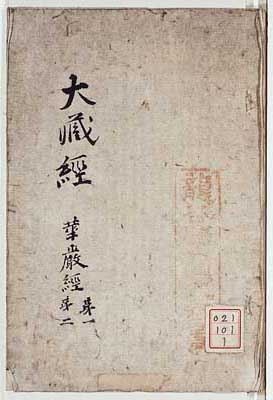 大藏經
華嚴經 第一
第二
021
101
1